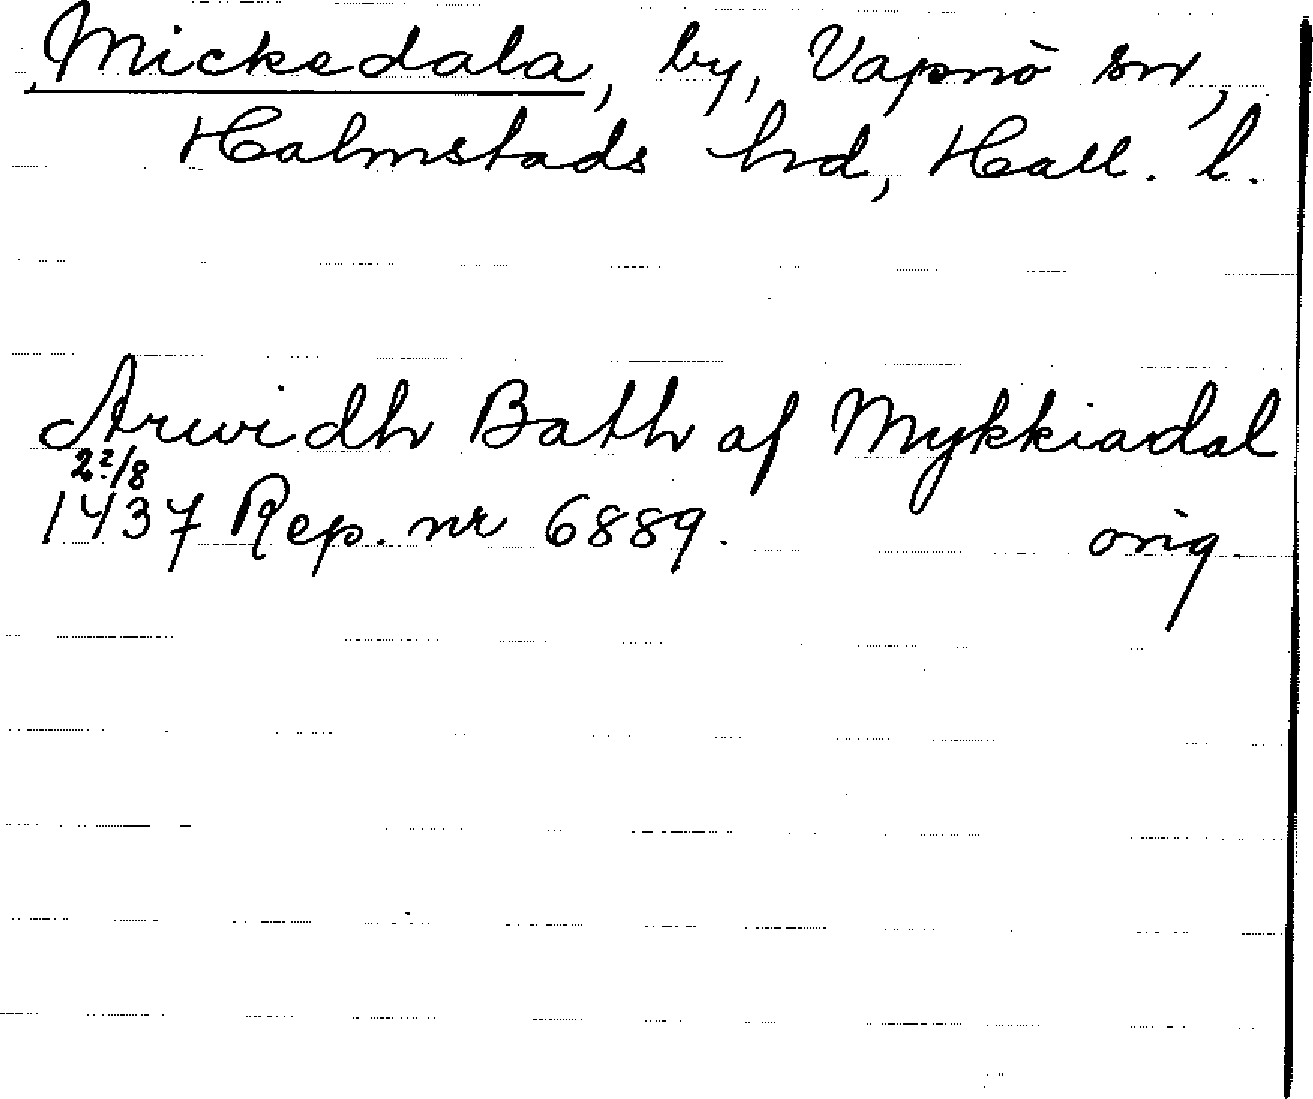 Mickedala, by, Vapnö sn,
Halmstads hrd, Hall. l.
Arwidh Bath af Mykkiadal
22/8
1437 Rep. nr 6889. orig.